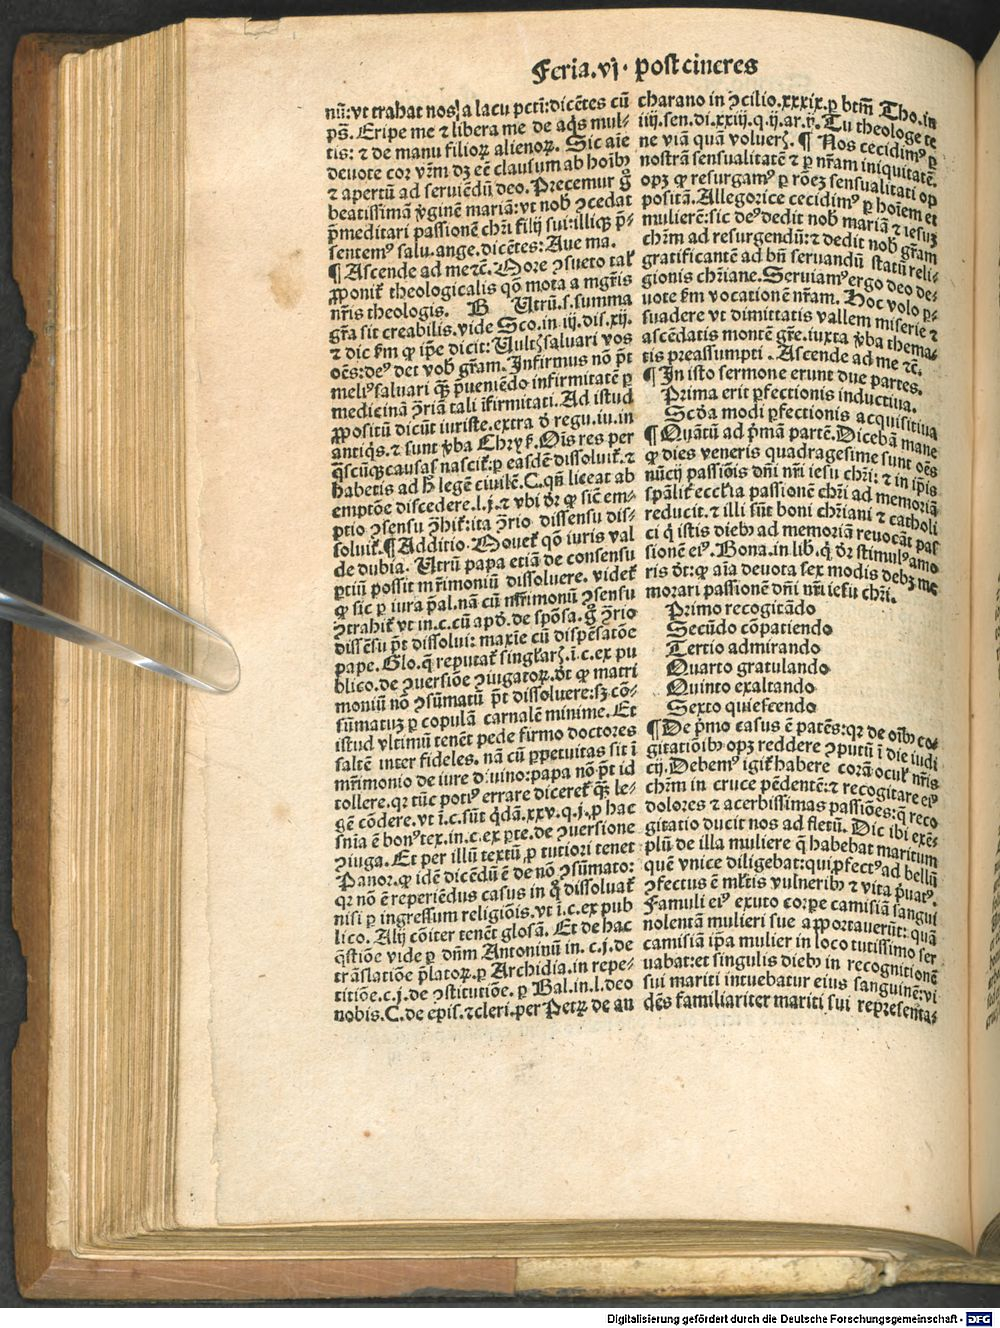 Feria.vj. post cineres
nū:vt trahat nos a lacu pctī:dicētes cū
ps̄. Eripe me ⁊ libera me de aq̇s mul-
tis: ⁊ de manu filioꝝ alienoꝝ. Sic aīe
deuote cor vr̄m dꝫ eē clausum ab hoībꝰ
⁊ apertū ad seruiēdū deo. Precemur g̊
beatissimā ꝟginē mariā:vt nobꝭ ꝯcedat
p̄meditari passionē chr̄i filij sui:illiqꝫ p̄-
sentemꝰ salu.ange.dicētes: Aue ma.
¶ Ascende ad me ⁊c̄. More ꝯsueto talꝭ
ꝓponit̄ theologicalis qō mota a mgr̄is
nr̄is theologis. B Utrū.s.summa
gr̄a sit creabilis.vide Sco.in iij.dis.xij.
⁊ dic km̄ ꝙ ip̄e dicit: Uultꝭ saluari vos
oēs:deꝰ det vobꝭ gr̄am. Infirmus nō pt̄
meliꝰ saluari qꝫ̄ p̱ueniēdo infirmitatē p̱
medicinā ꝯ̄riā tali īfirmitati. Ad istud
ꝓpositū dicūt iuriste.extra ō regu.iu.in
antiq̇s.⁊ sunt ꝟba Chrys̄. Oīs res per
q̄scūqꝫ causas nascit̄:p̱ easdē dissoluit̄.⁊
habetis ad h̄ legē ciuilē.C.qn̄ liceat ab
emptōe discedere.l.j.⁊ vbi dr̄ ꝙ sic̄ em-
ptio ꝯsensu ꝯ̄hit̄:ita ꝯ̄rio dissensu dis-
soluit̄.¶ Additio. Mouet̄ qō iuris val
de dubia. Utrū papa etiā de consensu
p̱tiū possit mr̄imoniū dissoluere. videt̄
ꝙ sic p̱ iura p̄al.nā cū mr̄imoniū ꝯsensu
ꝯtrahit̄ vt in.c.cū apō.de spōsa.g̊ ꝯ̄rio
dissēsu pt̄ dissolui: maxīe cū dispēsatōe
pape. Glo.q̄ reputat̄ singłarꝭ.ī.c.ex pu
blico.de ꝯuersiōe ꝯiugatoꝝ.dt̄ ꝙ matri
moniū nō ꝯsūmatū pt̄ dissoluere:sꝫ cō-
sūmatuꝫ p̱ copulā carnalē minime. Et
istud vltimū tenēt pede firmo doctores
saltē inter fideles. nā cū p̱petuitas sit ī
mr̄imonio de iure diuino:papa nō pt̄ id
tollere.qꝛ tūc potiꝰ errare diceret̄ qꝫ̄ le-
gē cōdere.vt ī.c.sūt q̇dā.xxv.q.j.ꝓ hac
sn̄ia ē bonꝰ tex.in.c.ex p̱te.de ꝯuersione
ꝯiuga. Et per illū textū ꝓ tutiori tenet
Panor.ꝙ idē dicēdū ē de nō ꝯsūmato:
qꝛ nō ē reperiēdus casus in q̊ dissoluat̄
nisi p̱ ingressum religiōis.vt ī.c.ex pub
lico. Alij cōiter tenēt glosā. Et de hac
q̄stiōe vide p̱ dn̄m Antoninū in. c.j.de
trāslatiōe p̄latoꝝ.p̱ Archidia.in repe-
titiōe.c.j.de ꝯstitutiōe. p̱ Bal.in.l.deo
nobis.C.de ep̄is.⁊ cleri.per Petꝝ de an
charano in ꝯcilio.xxxix.p̱ btm̄ Tho.in
iiij.sen.di.xxiij.q.ij.ar.ij. Tu theologe te
ne viā quā volueꝭ. ¶ Nos cecidimꝰ p̱
nostrā sensualitatē ⁊ p̱ nr̄am iniquitatē.
opꝫ ꝙ resurgamꝰ p̱ rōeꝫ sensualitati op
positā. Allegorice cecidimꝰ p̱ hoīem et
mulierē:sic deꝰ dedit nobꝭ mariā ⁊ iesuꝫ
chr̄m ad resurgendū:⁊ dedit nobꝭ gr̄am
gratificantē ad bn̄ seruandū statū reli-
gionis chr̄iane. Seruiamꝰ ergo deo de-
uote km̄ vocationē nr̄am. Hoc volo p̱-
suadere vt dimittatis vallem miserie ⁊
ascēdatis montē gr̄e.iuxta ꝟba thema-
tis preassumpti. Ascende ad me ⁊c̄.
¶ In isto sermone erunt due partes.
Prima erit p̱fectionis inductiua.
Scd̄a modi p̱fectionis acquisitiua
¶ Quātū ad p̄mā partē. Dicebā mane
ꝙ dies veneris quadragesime sunt oēs
nūcij passiōis dn̄i nr̄i iesu chr̄i: ⁊ in ip̄is
sp̄alit̄ eccl̄ia passionē chr̄i ad memoriā
reducit.⁊ illi sūt boni chr̄iani ⁊ catholi
ci q̇ istis diebꝰ ad memoriā reuocāt pas
sionē eiꝰ. Bona.in lib.q̇ dr̄ stimulꝰ amo
ris dt̄:ꝙ aīa deuota sex modis debꝫ me
morari passionē dn̄i nr̄i iesu chr̄i.
Primo recogitādo
Secūdo cōpatiendo
Tertio admirando
Quarto gratulando
Quinto exaltando
Sexto quiescendo
¶ De p̄mo casus ē patēs:qꝛ de oībꝰ co-
gitatiōibꝰ opꝫ reddere ꝯputū ī die iudi
cij. Debemꝰ igit̄ habere corā ocul̄ nr̄is
chr̄m in cruce pēdentē:⁊ recogitare eiꝰ
dolores ⁊ acerbissimas passiōes:q̄ reco
gitatio ducit nos ad fletū. Dic ibi exē-
plū de illa muliere q̄ habebat maritum
quē vnice diligebat:qui ꝓfectꝰ ad bellū
ꝯfectus ē ml̄tis vulneribꝰ ⁊ vita p̄uatꝰ.
Famuli eiꝰ exuto corpe camisiā sangui
nolentā mulieri sue apportauerūt: quā
camisiā ip̄a mulier in loco tutissimo ser
uabat:et singulis diebꝰ in recognitionē
sui mariti intuebatur eius sanguinē:vi
dēs familiariter mariti sui representa-
Digitalisierung gefördert durch die Deutsche Forschungsgemeinschaft - DFG